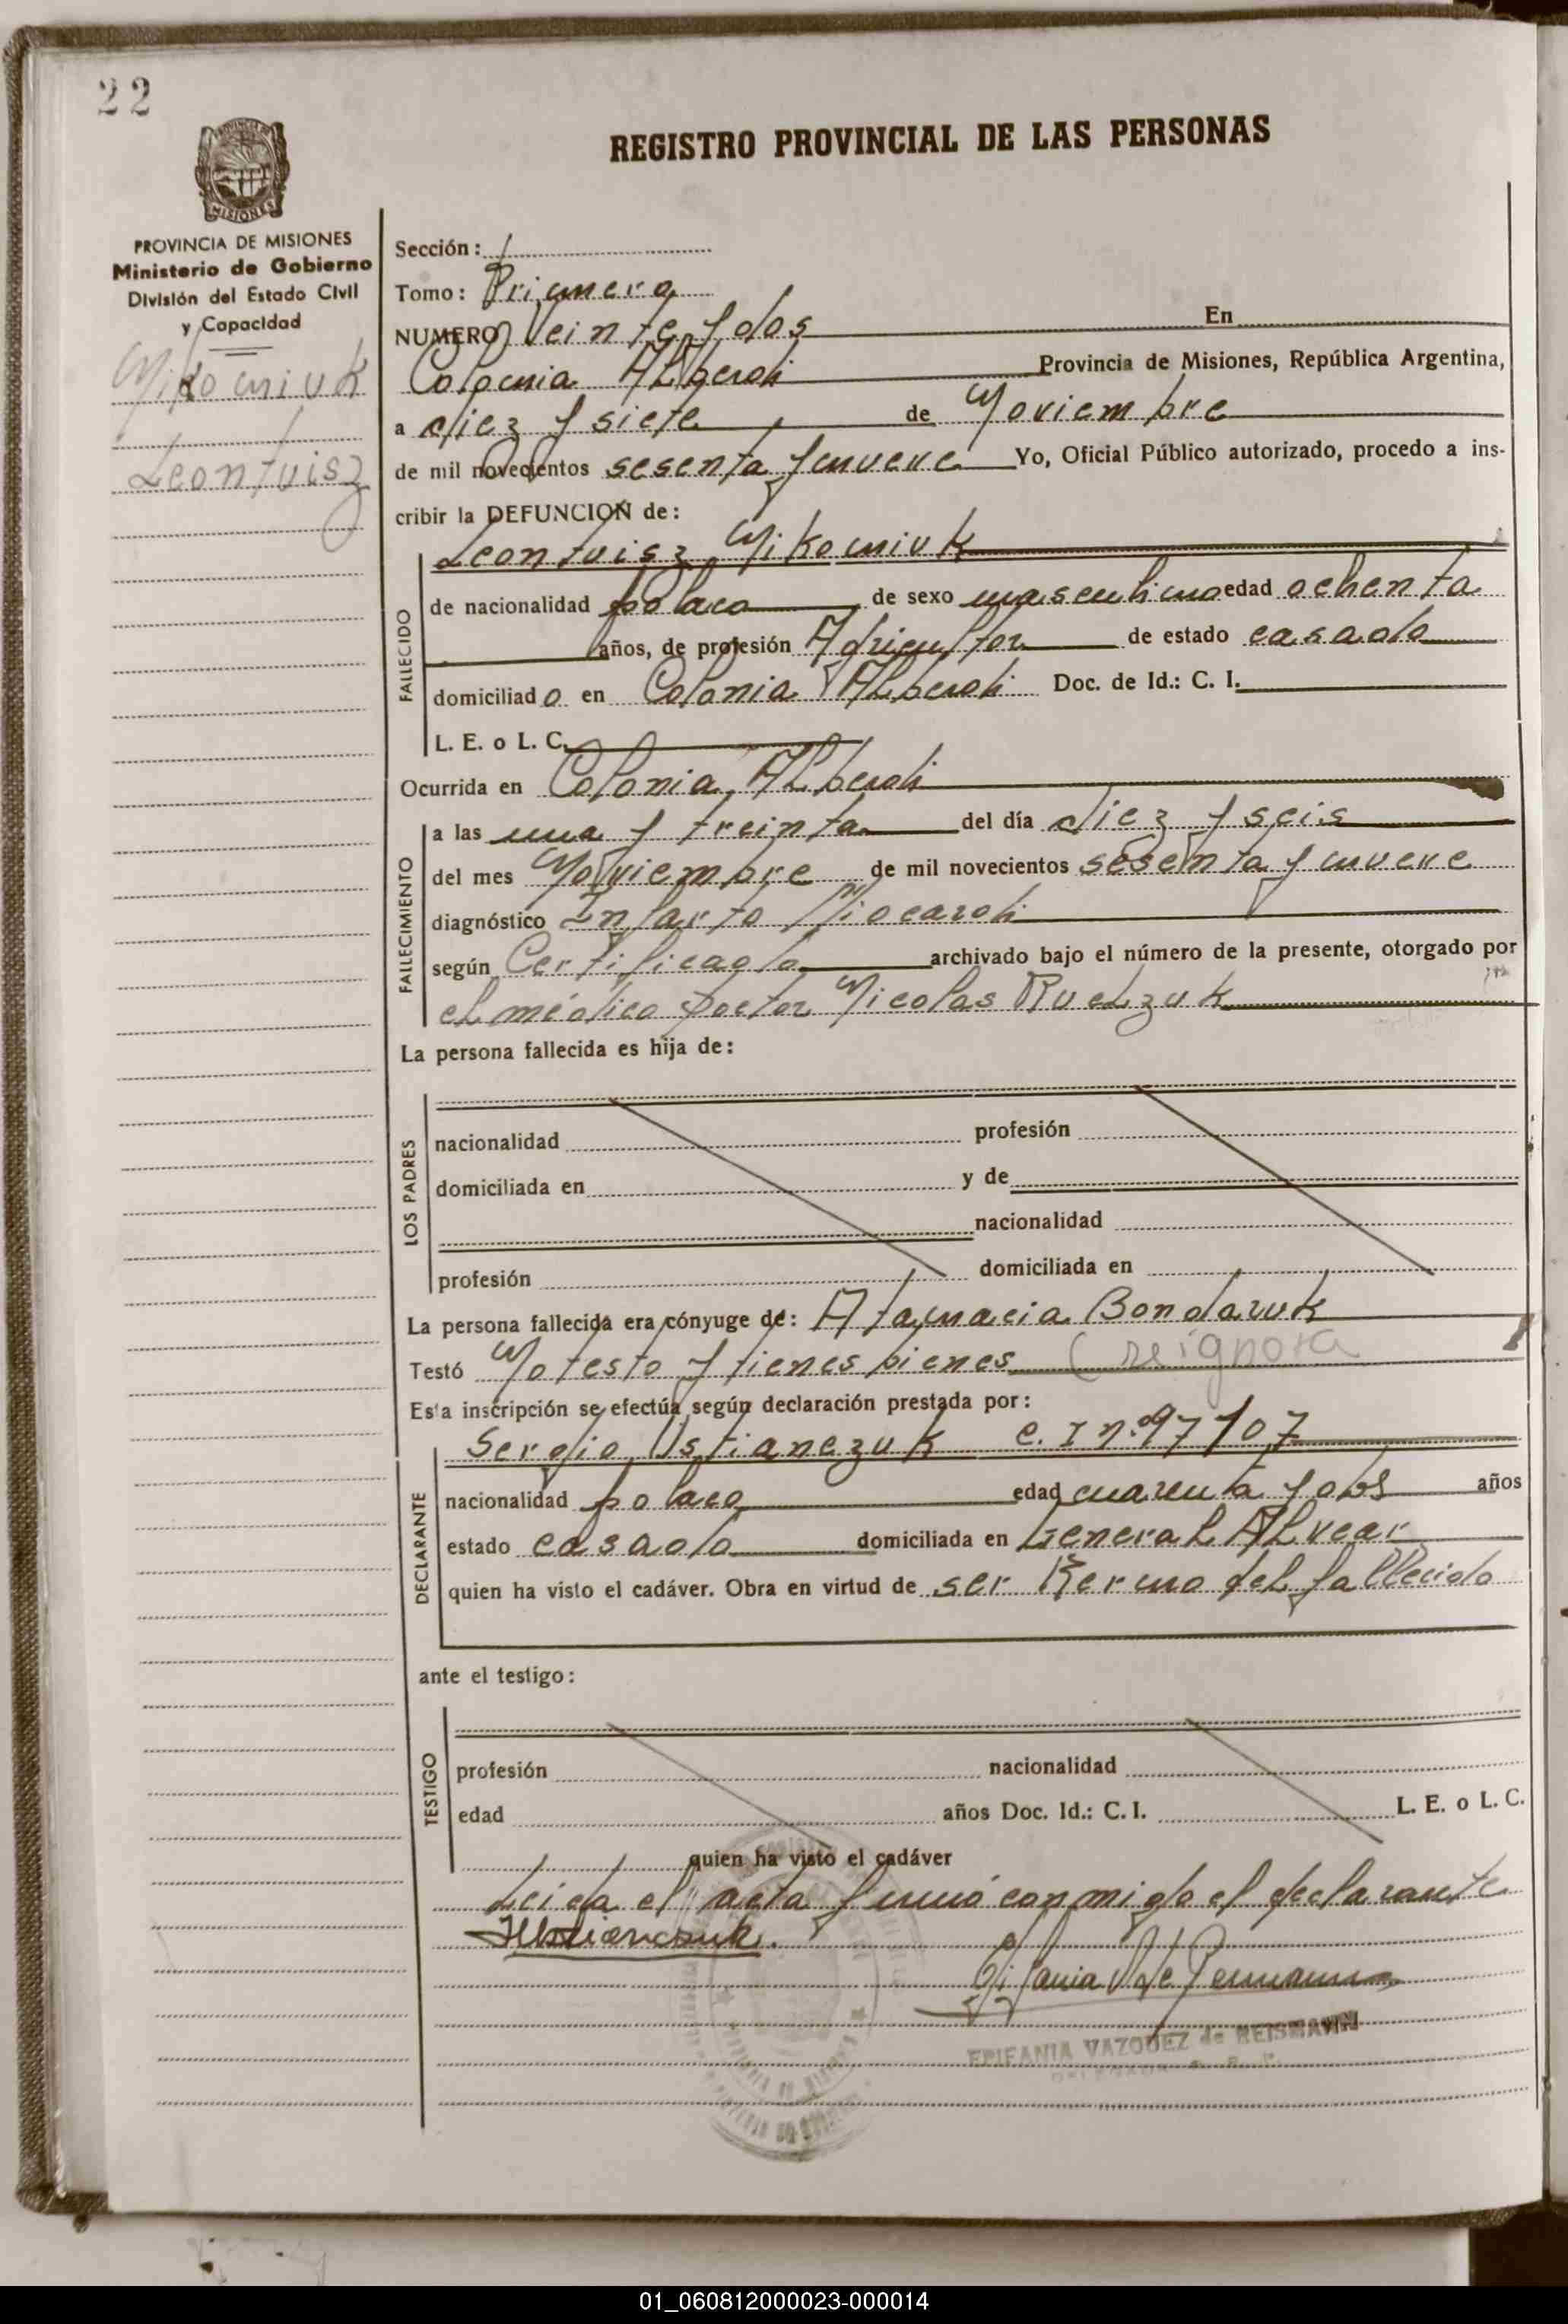 22
REGISTRO PROVINCIAL DE LAS PERSONAS
PROVINCIA DE MISIONES
Ministerio de Gobierno
División del Estado Civil
y Capacidad
Nikoniuk
Leontuisz
Sección: 1
Tomo: Primero
NUMERO Veinte y dos En
Colonia ALberdi Provincia de Misiones, República Argentina,
a diez y siete de Noviembre
de mil novecientos sesenta y nueve Yo, Oficial Público autorizado, procedo a ins-
cribir la DEFUNCION de:
Leontuisz Nikoniuk
FALLECIDO
de nacionalidad polaco de sexo masculino edad ochenta
años, de profesión Agricultor de estado casado
domiciliado en Colonia ALberdi Doc. de Id.: C. I.
L. E. o L. C.
Ocurrida en Colonia ALberdi
FALLECIMIENTO
a las una y treinta del día diez y seis
del mes Noviembre de mil novecientos sesenta y nueve
diagnóstico Infarto Miocardi
según Certificado archivado bajo el número de la presente, otorgado por
el médico Doctor Nicolas
La persona fallecida es hija de:
LOS PADRES
nacionalidad profesión
domiciliada en y de
nacionalidad
profesión domiciliada en
La persona fallecida era cónyuge de: Atanacia Bondaruk
Testó No testo y tienes bienes (se ignora
Esta inscripción se efectúa según declaración prestada por:
Sergio Ustianczuk C. I nº 97107
DECLARANTE
nacionalidad polaco edad cuarenta y dos años
estado casado domiciliada en General ALvear
quien ha visto el cadáver. Obra en virtud de ser Yerno del fallecido
ante el testigo:
TESTIGO
profesión nacionalidad
edad años Doc. Id.: C. I. L. E. o L. C.
quien ha visto el cadáver
Leida el acta firmó conmigo el declarante
Epifania V de Reismann
EPIFANIA VAZQUEZ de REISMANN
01_060812000023-000014